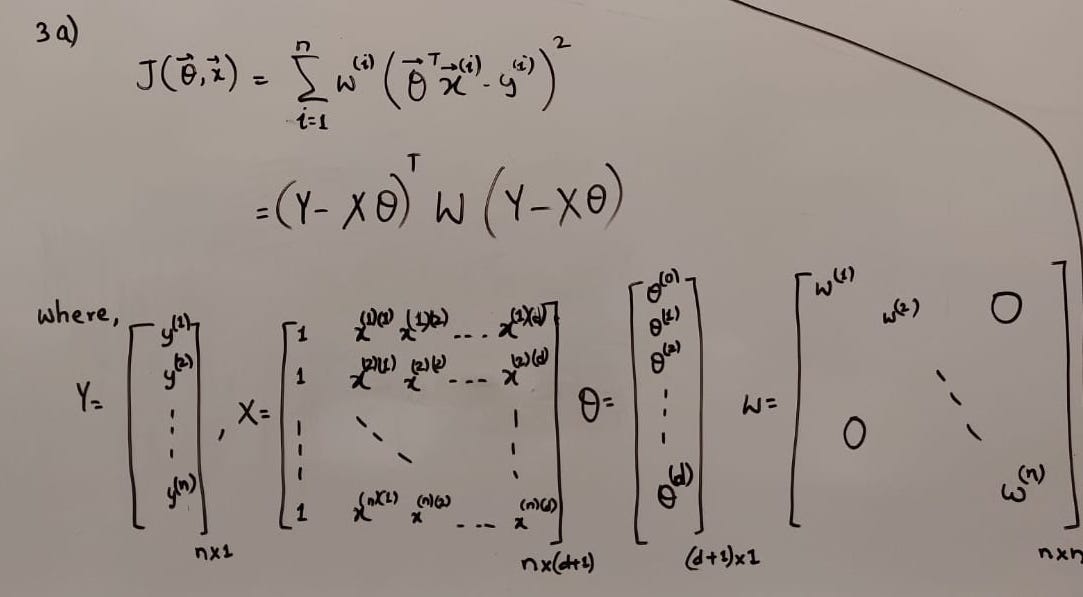 3a)
J(θ⃗,x⃗) = Σ_{i=1}^{n} w^{(i)} (θ⃗^T x⃗^{(i)} - y^{(i)})^2
= (Y - Xθ)^T W (Y - Xθ)
where,
Y = [y^{(1)} y^{(2)} ⋮ y^{(n)}]_{n×1} , X = [1 x^{(1)(1)} x^{(1)(2)} ... x^{(1)(d)} ; 1 x^{(2)(1)} x^{(2)(2)} ... x^{(2)(d)} ; ⋮ ⋱ ⋮ ; 1 x^{(n)(1)} x^{(n)(2)} ... x^{(n)(d)}]_{n×(d+1)} θ = [θ^{(0)} θ^{(1)} θ^{(2)} ⋮ θ^{(d)}]_{(d+1)×1} W = [w^{(1)} w^{(2)} 0 ⋱ 0 w^{(n)}]_{n×n}